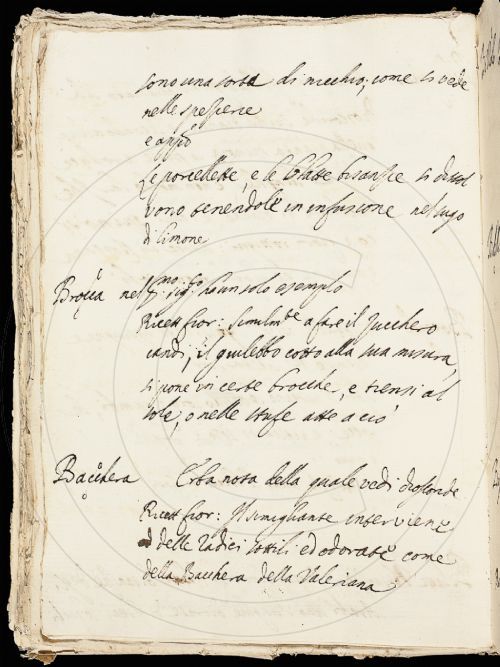 sono una sorta di nicchio, come si vede
nelle spesierie
e app.o
Le porcellette, e le blatte bisansie si dissol
vono tenendole in infusione nel sugo
di limone
Brocca nel sig.o ha un solo esempio
Ricett fior: Similm.te a fare il zucchero
candi, il giulebbo cotto alla sua misura,
si pone in certe brocche, e tiensi al
sole, o nelle stufe atte a ciò
Bacchera Erba nota della quale vedi
Ricett fior: Il simigliante interviene
delle radici sottili ed odorate come
della Bacchera della Valeriana